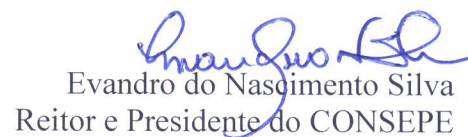 Evandro do Nascimento Silva
Reitor e Presidente do CONSEPE